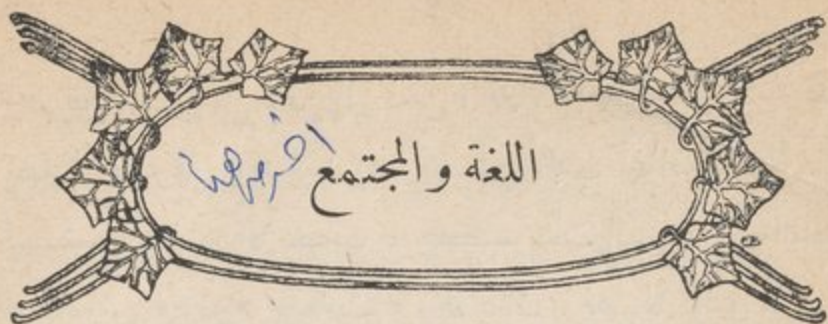 اللغة والمجتمع